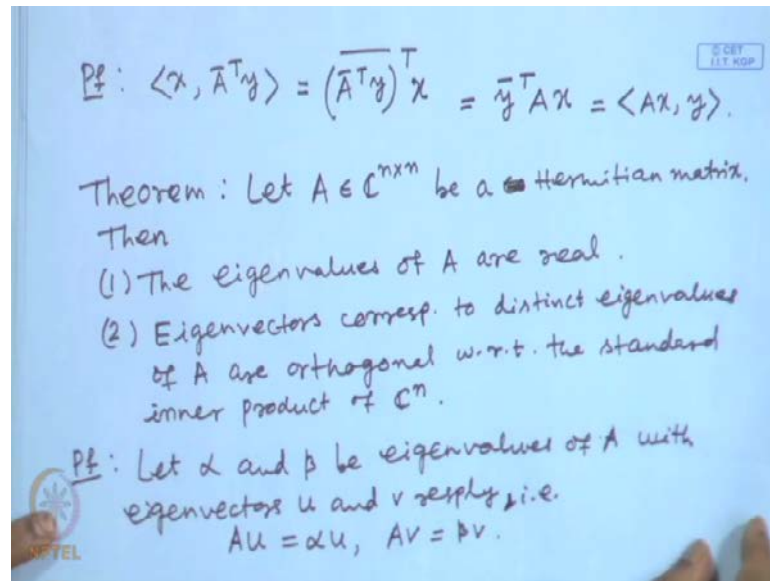 Pf : ⟨x, A̅ᵀy⟩ = (\overline{A̅ᵀy})ᵀ x = y̅ᵀAx = ⟨Ax, y⟩.
© CET
I.I.T. KGP
Theorem : Let A ∈ ℂⁿˣⁿ be a Hermitian matrix.
Then
(1) The eigenvalues of A are real.
(2) Eigenvectors corresp. to distinct eigenvalues
of A are orthogonal w.r.t. the standard
inner product of ℂⁿ.
Pf : Let α and β be eigenvalues of A with
eigenvectors u and v resply, i.e.
Au = αu, Av = βv.
NPTEL